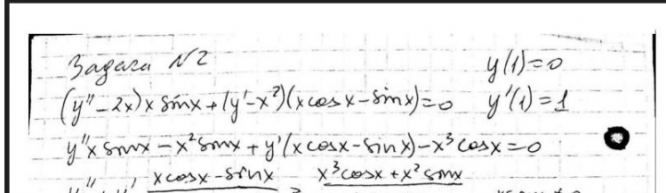 Задача №2 y(1)=0
(y''-2x)x sinx+(y'-x²)(x cosx-sinx)=0 y'(1)=1
y''x sinx-x² sinx+y'(x cosx-sinx)-x³cosx=0
x cosx-sinx x³cosx+x² sinx